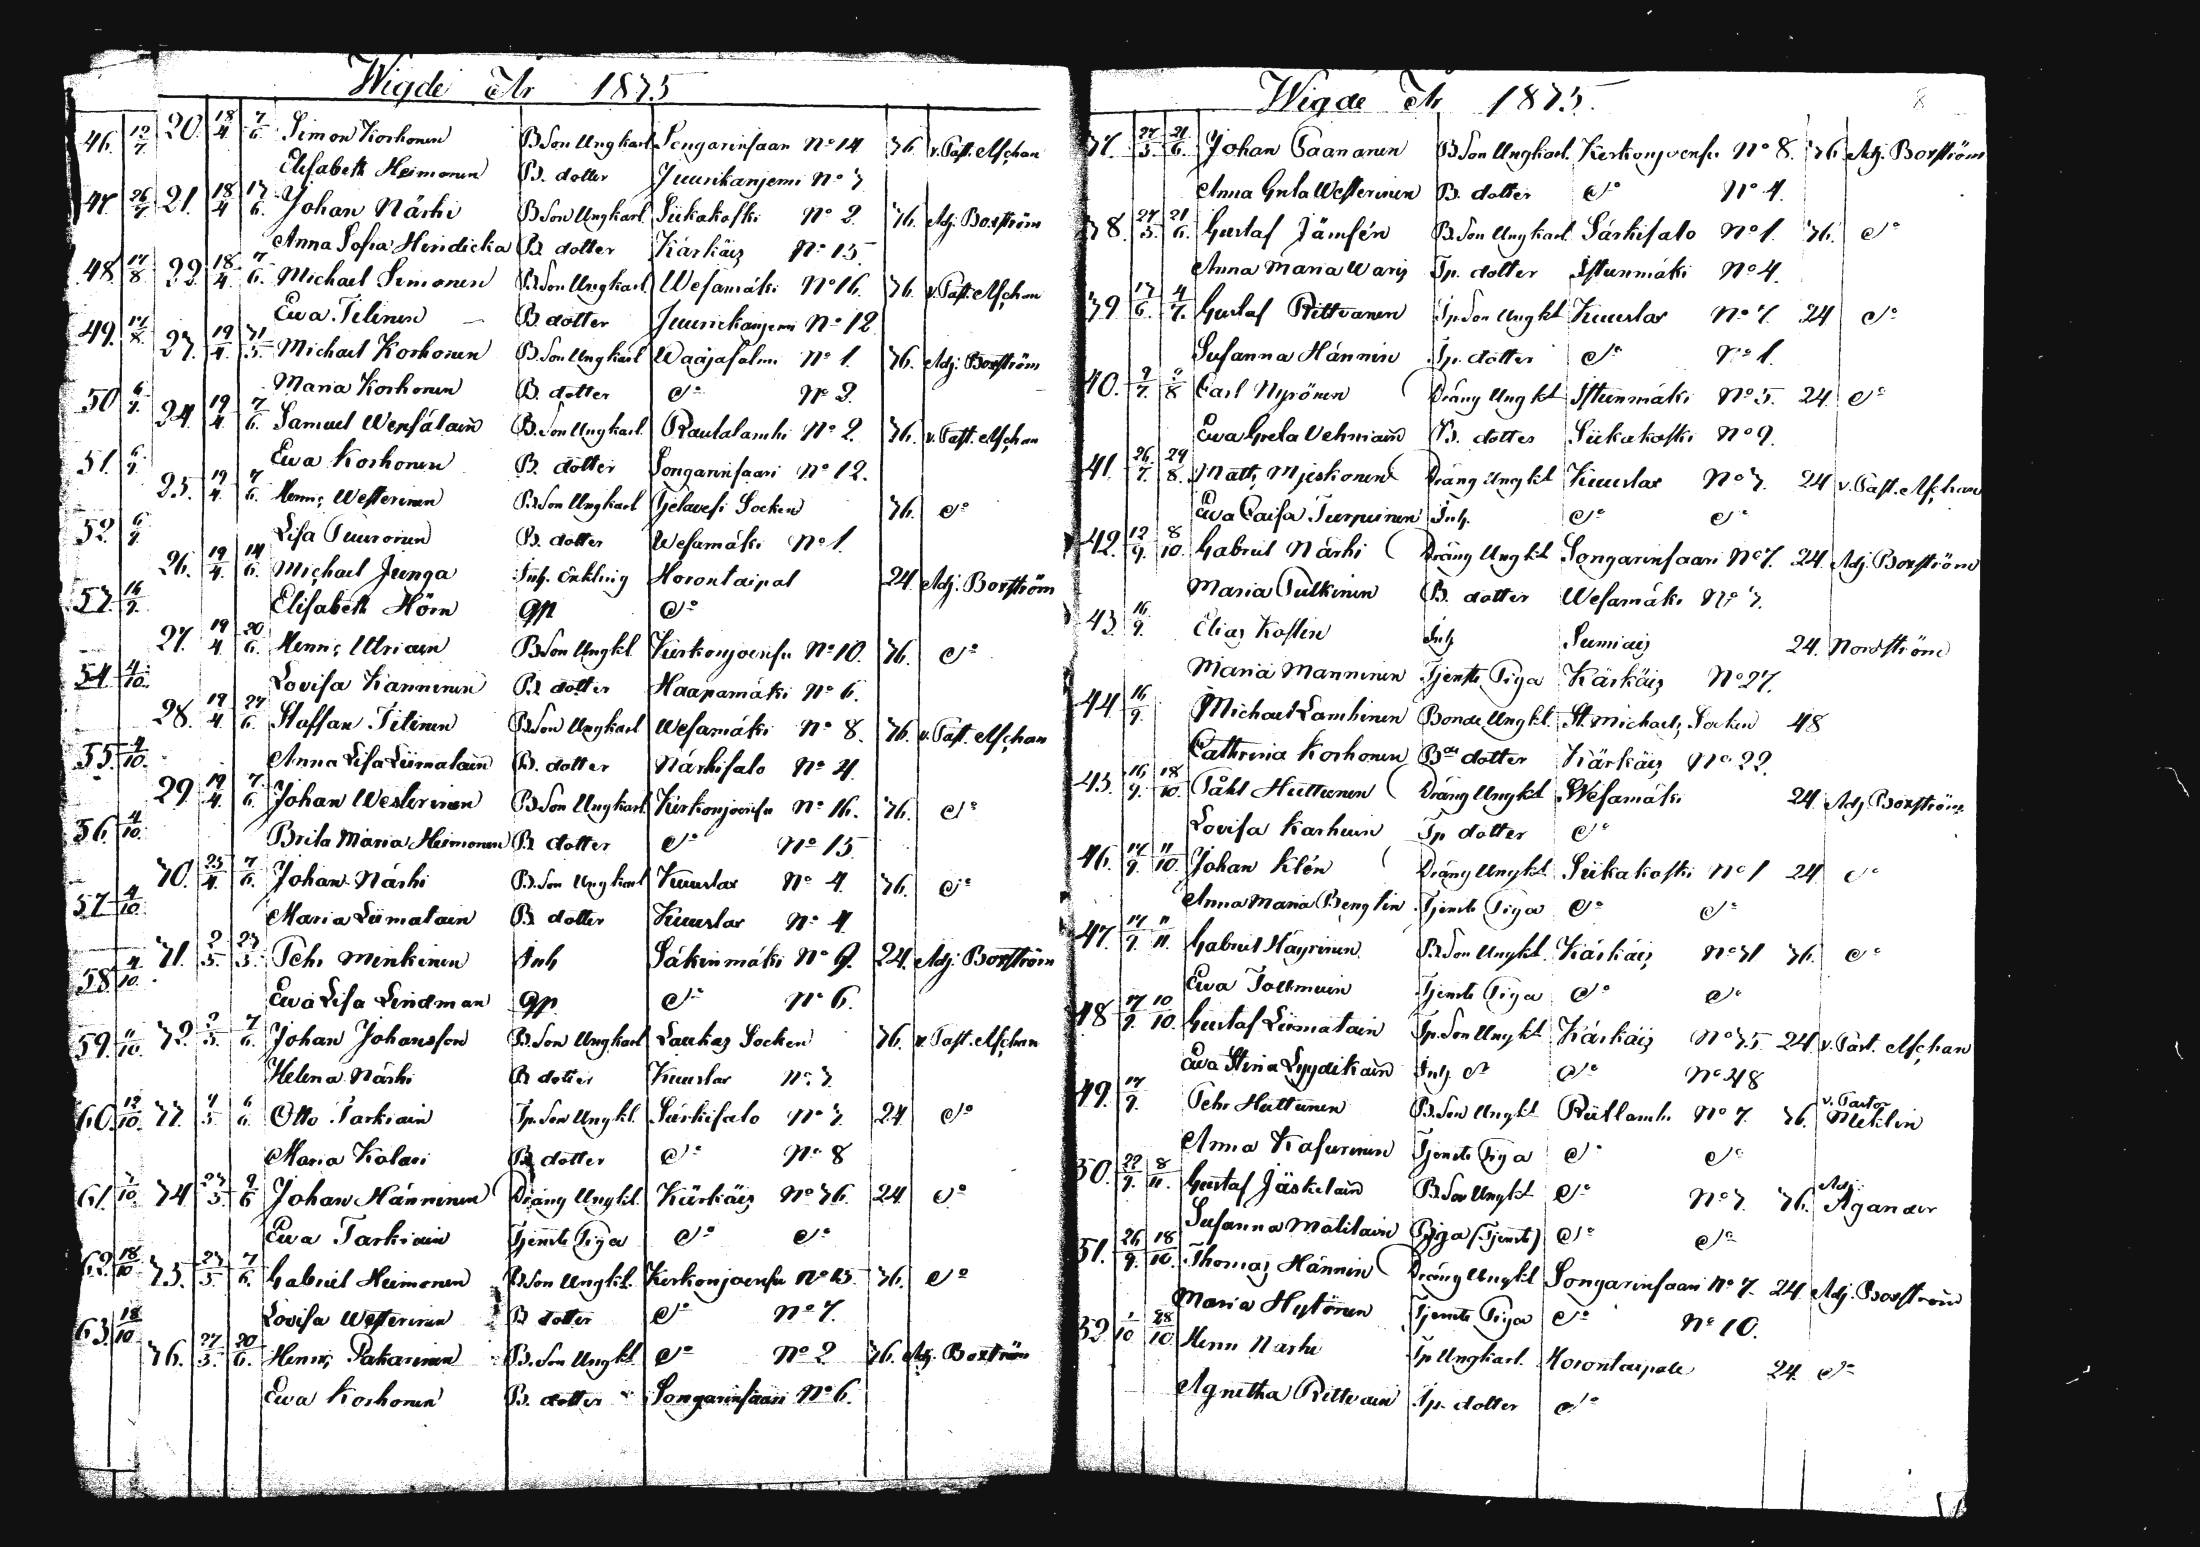 Wigde År 1835
46. 12/7. 20. 18/4 7/6. Simon Korhonen B Son Ungkarl Songarinsaari No 14 36 v. Past. Aschan
Elisabeth Heimonen B. dotter Juurikaniemi No 3
47. 26/7 21. 18/4 13/6. Johan Närhi B Son Ungkarl Siikakoski No 2. 36. Adj. Boxström
Anna Sofia Hendicka B. dotter Kärkäis No 15
48. 14/8 22. 18/4. 7/6. Michael Simonen B. Son Ungkarl Wesamäki No 16. 36. v. Past. Aschan
Ewa Titinen B. dotter Juurikaniemi No 12
49. 14/8. 23. 19/4. 31/5. Michael Korhonen B. Son Ungkarl Waajasalmi No 1. 36. Adj. Boxström
Maria Korhonen B. dotter do No 2.
50 6/9. 24. 19/4. 7/6. Samuel Wensäläin B. Son Ungkarl. Rautalambi No 2. 36. v. Past. Aschan
Ewa Korhonen B. dotter Songarinsaari No 12.
51. 6/9. 25. 19/4. 7/6. Henr: Westerinen B. Son Ungkarl Pjelavesi Socken 36. do
52. 6/9. Lisa Puuronen B. dotter Wesamäki No 1.
26. 19/4. 14/6. Michael Junga Inh. Enkling Horontaipal 24. Adj. Boxström
53. 16/9. Elisabeth Hörn Gp do
27. 19/4. 20/6. Henr: Utriain B. Son Ungkl. Kerkonjoensu No 10. 36. do
54. 4/10. Lovisa Kanninen B. dotter Haapamäki No 6.
28. 19/4. 27/6. Staffan Titinen B. Son Ungkarl Wesamäki No 8. 36. v. Past. Aschan
55. 4/10. Anna Lisa Liimatain B. dotter Närhisalo No 4.
29 19/4. 7/6. Johan Westerinen B. Son Ungkarl. Kerkonjoensu No 16. 36. do
56. 4/10. Brita Maria Heimonen B dotter do No 15.
30. 25/4. 7/6. Johan Närhi B. Son Ungkarl Kuuslax No 4. 36. do
57 4/10. Maria Liimatain B dotter Kuuslax No 4
31. 2/5. 23/5. Pehr Minkinen Inh Säkinmäki No 9. 24. Adj. Boxström
58. 4/10. Ewa Lisa Lindman Gp. do No 6.
59. 11/10. 32. 2/5. 7/6. Johan Johansson B. Son Ungkarl Laukas Socken 36. v. Past. Aschan
Helena Närhi B dotter Kuuslax No 3
60. 12/10. 33. 4/5. 6/6. Otto Tarkiain Tp. Son Ungkl. Särkisalo No 3. 24 do
Maria Kolari B. dotter do No 8
61. 7/10. 34. 23/5. 9/6 Johan Hänninen Dräng Ungkl. Kärkäis No 36. 24. do
Ewa Tarkiain Tjenste Piga do do
62. 18/10 35. 23/5. 7/6. Gabriel Heimonen B. Son Ungkl. Kerkonjoensu No 15. 36. do
Lovisa Westerinen B dotter do No 7.
63. 18/10. 36. 27/5. 20/6. Henr: Pakarinen B. Son Ungkl. do No 2 36. Adj. Boxström
Ewa Korhonen B. dotter Songarinsaari No 6.
Wigde År 1835. 8
37. 27/5. 21/6. Johan Paananen B Son Ungkarl. Kerkonjoensu No 8. 36 Adj. Boxström
Anna Greta Westerinen B. dotter do No 4.
38. 27/5. 21/6. Gustaf Jämsén B. Son Ungkarl. Särkisalo No 1. 36. do
Anna Maria Waris Tp. dotter Istunmäki No 4.
39 17/6. 4/7. Gustaf Rittvanen Tp. Son Ungkl Kuuslax No 7. 24 do
Susanna Hännin Tp. dotter do No 1.
40. 9/7. 9/8 Carl Nyrönen Dräng Ungkl Istunmäki No 5. 24. do
Ewa Greta Vehniain B. dotter Siikakoski No 9.
41. 26/7. 29/8. Matts Mjeskonen Dräng Ungkl Kuuslax No 3. 24 v. Past. Aschan
Ewa Caisa Turpeinen Inh. do do
42. 12/9. 8/10. Gabriel Närhi Dräng Ungkl. Songarinsaari No 7. 24. Adj. Boxström
Maria Pulkinen B. dotter Wesamäki No 3.
43. 16/9. Elias Kostin Inh Sumiais 24. Nordström
Maria Manninen Tjenste Piga Kärkäis No 27.
44 16/9. Michael Lambinen Bonde Ungkl. St. Michaels Socken 48
Cathrina Korhonen Bde dotter Kärkäis No 22.
45. 16/9. 18/10. Påhl Huttunen Dräng Ungkl. Wesamäki 24. Adj. Boxström
Lovisa Karhuin Tp dotter do
46. 17/9. 11/10. Johan Klén Dräng Ungkl. Siikakoski No 1 24 do
Anna Maria Benglin Tjenste Piga do do
47. 17/9. 11/11. Gabriel Häyrinen B. Son Ungkl. Kärkäis No 31 36. do
Ewa Tossmuin Tjenste Piga do do
48 17/9. 10/10. Gustaf Liimatain Tp. Son Ungkl Kärkäis No 35 24 v. Past. Aschan
Ewa Stina Lyydikain Inh. do do No 48
49. 17/9. Pehr Huttunen B. Son Ungkl Rautlamb. No 7. 36. v. Pastor Meklin
Anna Kasurinen Tjenste Piga do do
50. 22/9. 8/11. Gustaf Jäskelain B. Son Ungkl do No 3. 36. Adj. Agander
Susanna Matilain Piga (Tjenste) do do
51. 26/9. 18/10. Thomas Hännin Dräng Ungkl Songarinsaari No 7. 24 Adj. Boxström
Maria Hytönen Tjenste Piga do No 10.
52. 1/10 28/10. Henr Närhi Tp Ungkarl. Horontaipale 24. do
Agnetha Rittvain Tp. dotter do